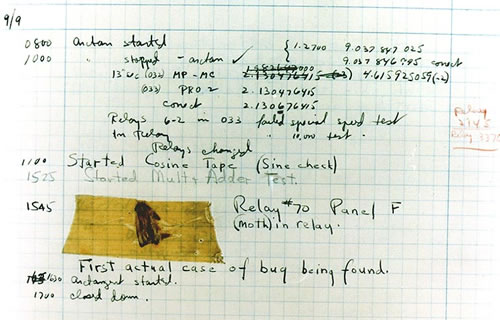 9/9
0800 antan started { 1.2700 9.037 847 025
1000 " stopped - antan ✓ 9.037 846 995 conect
13"uc (032) MP - MC 2.130476415 4.615925059(-2)
(033) PRO 2 2.130476415
conect 2.130676415
Relays 6-2 in 033 failed special speed test
in relay " 10,000 test .
Relays changed
Relay
2145
Relay 3370
1100 Started Cosine Tape (Sine check)
1525 Started Mult + Adder Test.
1545 Relay #70 Panel F
(moth) in relay.
First actual case of bug being found.
1630 antangent started.
1700 closed down.